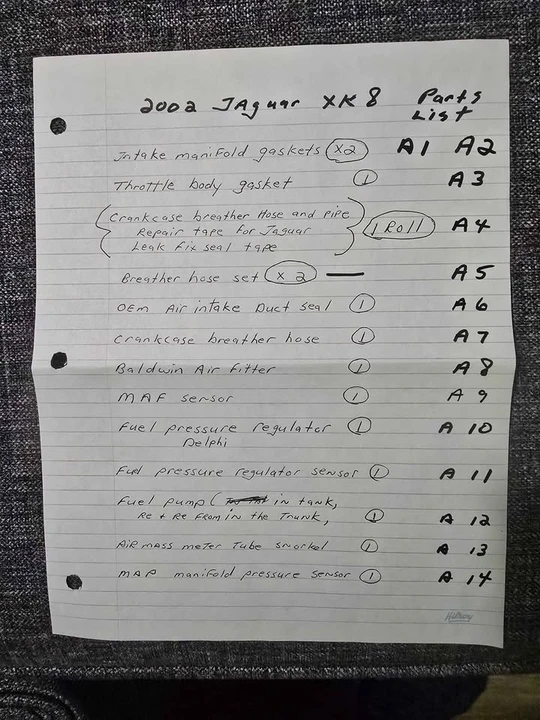 2002 JAguar XK8 Parts
List
Intake maniFold gaskets x2 A1 A2
Throttle body gasket 1 A3
(Crankcase breather Hose and pipe
Repair tape For Jaguar
Leak Fix seal tape) 1 Roll A4
Breather hose set x2 — A5
OEM Air intake Duct seal 1 A6
Crankcase breather hose 1 A7
Baldwin Air Filter 1 A8
MAF sensor 1 A9
Fuel pressure regulator 1 A 10
Delphi
Fuel pressure regulator sensor 1 A 11
Fuel pump ( in tank,
Re + Re From in the Trunk, 1 A 12
AiR mass meter Tube snorkel 1 A 13
MAP maniFold pressure sensor 1 A 14
Hilroy